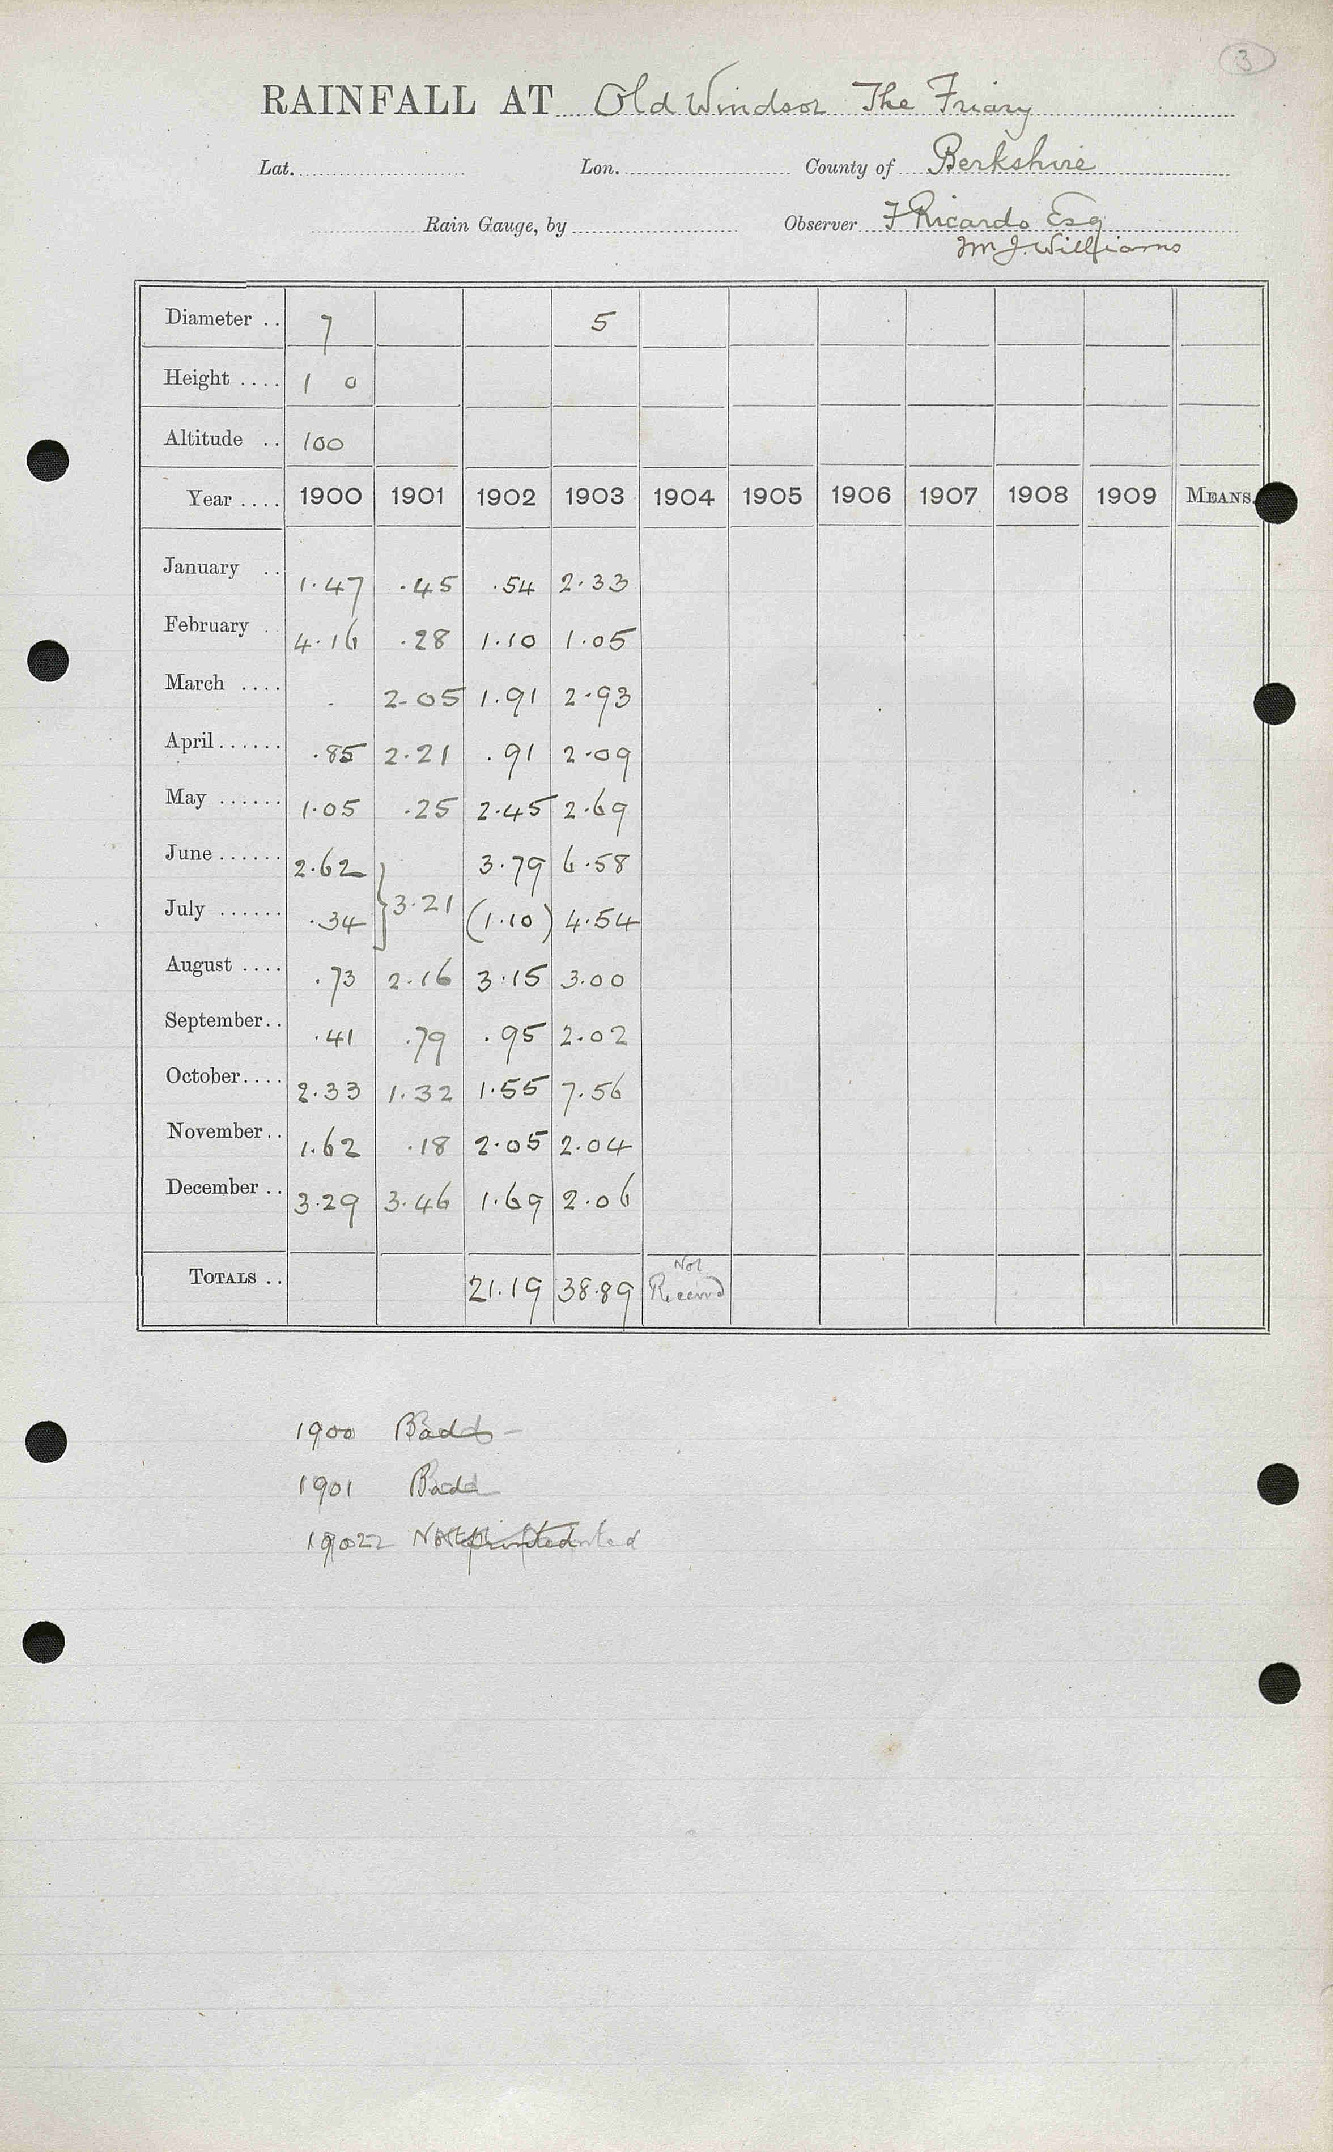 3
RAINFALL AT Old Windsor The Friary
Lat. Lon. County of Berkshire
Rain Gauge, by Observer F Ricardo Esq
J. Williams
Diameter .. 7 5
Height .... 1 0
Altitude .. 100
Year .... 1900 1901 1902 1903 1904 1905 1906 1907 1908 1909 MEANS.
January .. 1.47 .45 .54 2.33
February . 4.16 .28 1.10 1.05
March .... . 2.05 1.91 2.93
April...... .85 2.21 .91 2.09
May ...... 1.05 .25 2.45 2.69
June...... 2.62 3.79 6.58
July ...... .34 } 3.21 (1.10) 4.54
August .... .73 2.16 3.15 3.00
September.. .41 .79 .95 2.02
October.... 2.33 1.32 1.55 7.56
November.. 1.62 .18 2.05 2.04
December .. 3.29 3.46 1.69 2.06
TOTALS .. 21.19 38.89 Not Received
1900 Bad
1901 Bad
1902 Not printed